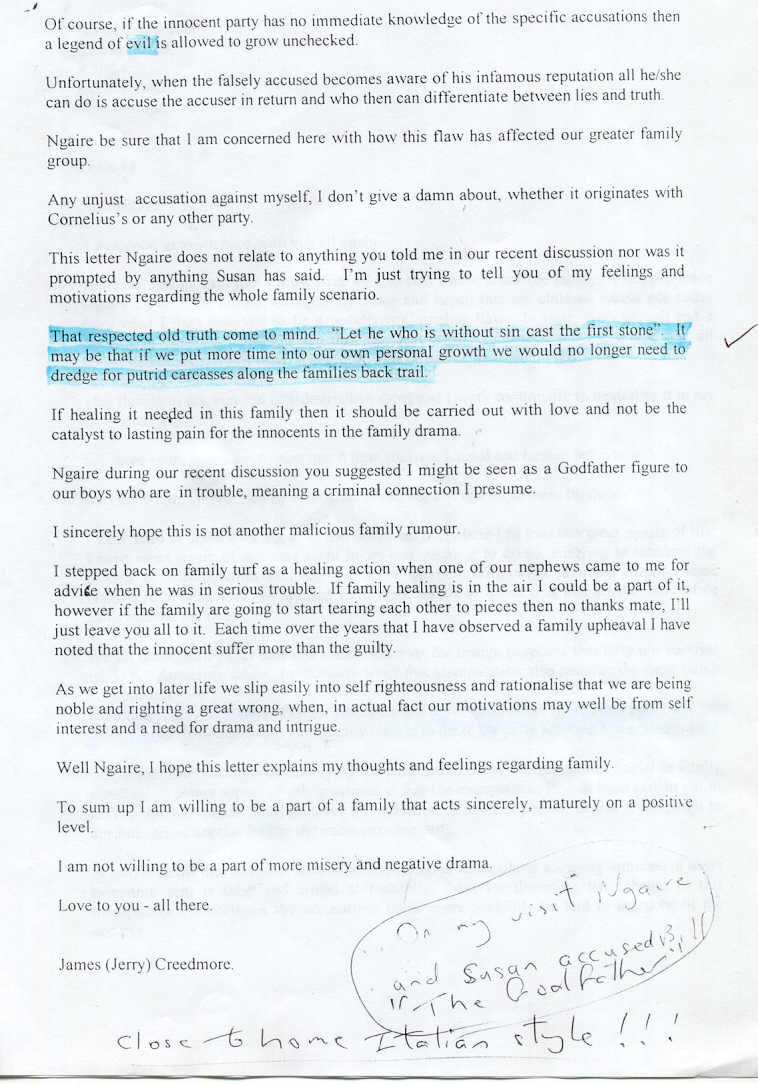 Of course, if the innocent party has no immediate knowledge of the specific accusations then
a legend of evil is allowed to grow unchecked.
Unfortunately, when the falsely accused becomes aware of his infamous reputation all he/she
can do is accuse the accuser in return and who then can differentiate between lies and truth.
Ngaire be sure that I am concerned here with how this flaw has affected our greater family
group.
Any unjust accusation against myself, I don't give a damn about, whether it originates with
Cornelius's or any other party.
This letter Ngaire does not relate to anything you told me in our recent discussion nor was it
prompted by anything Susan has said. I'm just trying to tell you of my feelings and
motivations regarding the whole family scenario.
That respected old truth come to mind. "Let he who is without sin cast the first stone". It
may be that if we put more time into our own personal growth we would no longer need to
dredge for putrid carcasses along the families back trail.
If healing it needed in this family then it should be carried out with love and not be the
catalyst to lasting pain for the innocents in the family drama.
Ngaire during our recent discussion you suggested I might be seen as a Godfather figure to
our boys who are in trouble, meaning a criminal connection I presume.
I sincerely hope this is not another malicious family rumour.
I stepped back on family turf as a healing action when one of our nephews came to me for
advice when he was in serious trouble. If family healing is in the air I could be a part of it,
however if the family are going to start tearing each other to pieces then no thanks mate, I'll
just leave you all to it. Each time over the years that I have observed a family upheaval I have
noted that the innocent suffer more than the guilty.
As we get into later life we slip easily into self righteousness and rationalise that we are being
noble and righting a great wrong, when, in actual fact our motivations may well be from self
interest and a need for drama and intrigue.
Well Ngaire, I hope this letter explains my thoughts and feelings regarding family.
To sum up I am willing to be a part of a family that acts sincerely, maturely on a positive
level.
I am not willing to be a part of more misery and negative drama.
Love to you - all there.
James (Jerry) Creedmore.
On my visit Ngaire
and Susan accused Bill
"The Godfather"!!
Close to home Italian style !!!